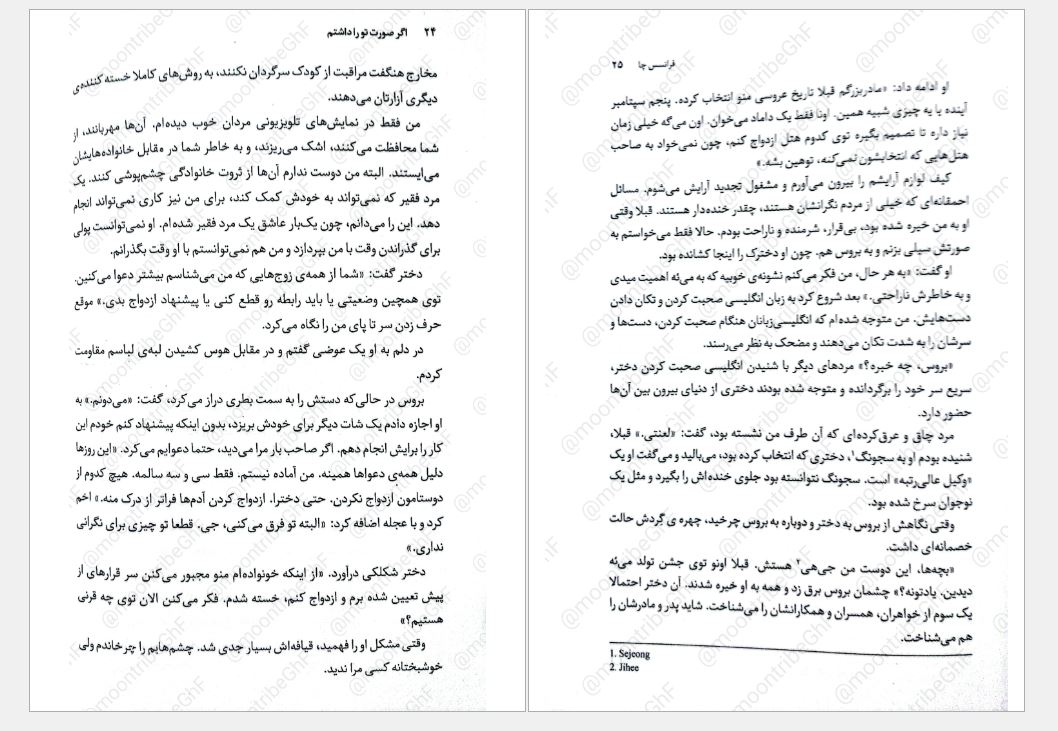 ۲۴ اگر صورت تو را داشتم
مخارج هنگفت مراقبت از کودک سرگردان نکنند، به روش‌های کاملا خسته کننده‌ی
دیگری آزارتان می‌دهند.
من فقط در نمایش‌های تلویزیونی مردان خوب دیده‌ام. آن‌ها مهربانند، از
شما محافظت می‌کنند، اشک می‌ریزند، و به خاطر شما در مقابل خانواده‌هایشان
می‌ایستند. البته من دوست ندارم آن‌ها از ثروت خانوادگی چشم‌پوشی کنند. یک
مرد فقیر که نمی‌تواند به خودش کمک کند، برای من نیز کاری نمی‌تواند انجام
دهد. این را می‌دانم، چون یک‌بار عاشق یک مرد فقیر شده‌ام. او نمی‌توانست پولی
برای گذراندن وقت با من بپردازد و من هم نمی‌توانستم با او وقت بگذرانم.
دختر گفت: «شما از همه‌ی زوج‌هایی که من می‌شناسم بیشتر دعوا می‌کنین.
توی همچین وضعیتی یا باید رابطه رو قطع کنی یا پیشنهاد ازدواج بدی.» موقع
حرف زدن سر تا پای من را نگاه می‌کرد.
در دلم به او یک عوضی گفتم و در مقابل هوس کشیدن لبه‌ی لباسم مقاومت
کردم.
بروس در حالی‌که دستش را به سمت بطری دراز می‌کرد، گفت: «می‌دونم.» به
او اجازه دادم یک شات دیگر برای خودش بریزد، بدون اینکه پیشنهاد کنم خودم این
کار را برایش انجام دهم. اگر صاحب بار مرا می‌دید، حتما دعوایم می‌کرد. «این روزها
دلیل همه‌ی دعواها همینه. من آماده نیستم. فقط سی و سه سالمه. هیچ کدوم از
دوستامون ازدواج نکردن. حتی دخترا. ازدواج کردن آدم‌ها فراتر از درک منه.» اخم
کرد و با عجله اضافه کرد: «البته تو فرق می‌کنی، جی. قطعا تو چیزی برای نگرانی
نداری.»
دختر شکلکی درآورد. «از اینکه خونواده‌ام منو مجبور می‌کنن سر قرارهای از
پیش تعیین شده برم و ازدواج کنم، خسته شدم. فکر می‌کنن الان توی چه قرنی
هستیم؟»
وقتی مشکل او را فهمید، قیافه‌اش بسیار جدی شد. چشم‌هایم را چرخاندم ولی
خوشبختانه کسی مرا ندید.
فرانسس چا ۲۵
او ادامه داد: «مادربزرگم قبلا تاریخ عروسی منو انتخاب کرده. پنجم سپتامبر
آینده یا یه چیزی شبیه همین. اونا فقط یک داماد می‌خوان. اون می‌گه خیلی زمان
نیاز داره تا تصمیم بگیره توی کدوم هتل ازدواج کنم، چون نمی‌خواد به صاحب
هتل‌هایی که انتخابشون نمی‌کنه، توهین بشه.»
کیف لوازم آرایشم را بیرون می‌آورم و مشغول تجدید آرایش می‌شوم. مسائل
احمقانه‌ای که خیلی از مردم نگرانشان هستند، چقدر خنده‌دار هستند. قبلا وقتی
او به من خیره شده بود، بی‌قرار، شرمنده و ناراحت بودم. حالا فقط می‌خواستم به
صورتش سیلی بزنم و به بروس هم. چون او دخترک را اینجا کشانده بود.
او گفت: «به هر حال، من فکر می‌کنم نشونه‌ی خوبیه که به می‌ئه اهمیت میدی
و به خاطرش ناراحتی.» بعد شروع کرد به زبان انگلیسی صحبت کردن و تکان دادن
دست‌هایش. من متوجه شده‌ام که انگلیسی‌زبانان هنگام صحبت کردن، دست‌ها و
سرشان را به شدت تکان می‌دهند و مضحک به نظر می‌رسند.
«بروس، چه خبره؟» مردهای دیگر با شنیدن انگلیسی صحبت کردن دختر،
سریع سر خود را برگردانده و متوجه شده بودند دختری از دنیای بیرون بین آن‌ها
حضور دارد.
مرد چاق و عرق‌کرده‌ای که آن طرف من نشسته بود، گفت: «لعنتی.» قبلا،
شنیده بودم او به سجونگ۱، دختری که انتخاب کرده بود، می‌بالید و می‌گفت او یک
«وکیل عالی‌رتبه» است. سجونگ نتوانسته بود جلوی خنده‌اش را بگیرد و مثل یک
نوجوان سرخ شده بود.
وقتی نگاهش از بروس به دختر و دوباره به بروس چرخید، چهره ی گردش حالت
خصمانه‌ای داشت.
«بچه‌ها، این دوست من جی‌هی۲ هستش. قبلا اونو توی جشن تولد می‌ئه
دیدین. یادتونه؟» چشمان بروس برق زد و همه به او خیره شدند. آن دختر احتمالا
یک سوم از خواهران، همسران و همکارانشان را می‌شناخت. شاید پدر و مادرشان را
هم می‌شناخت.
1. Sejeong
2. Jihee
@moontribeGhF